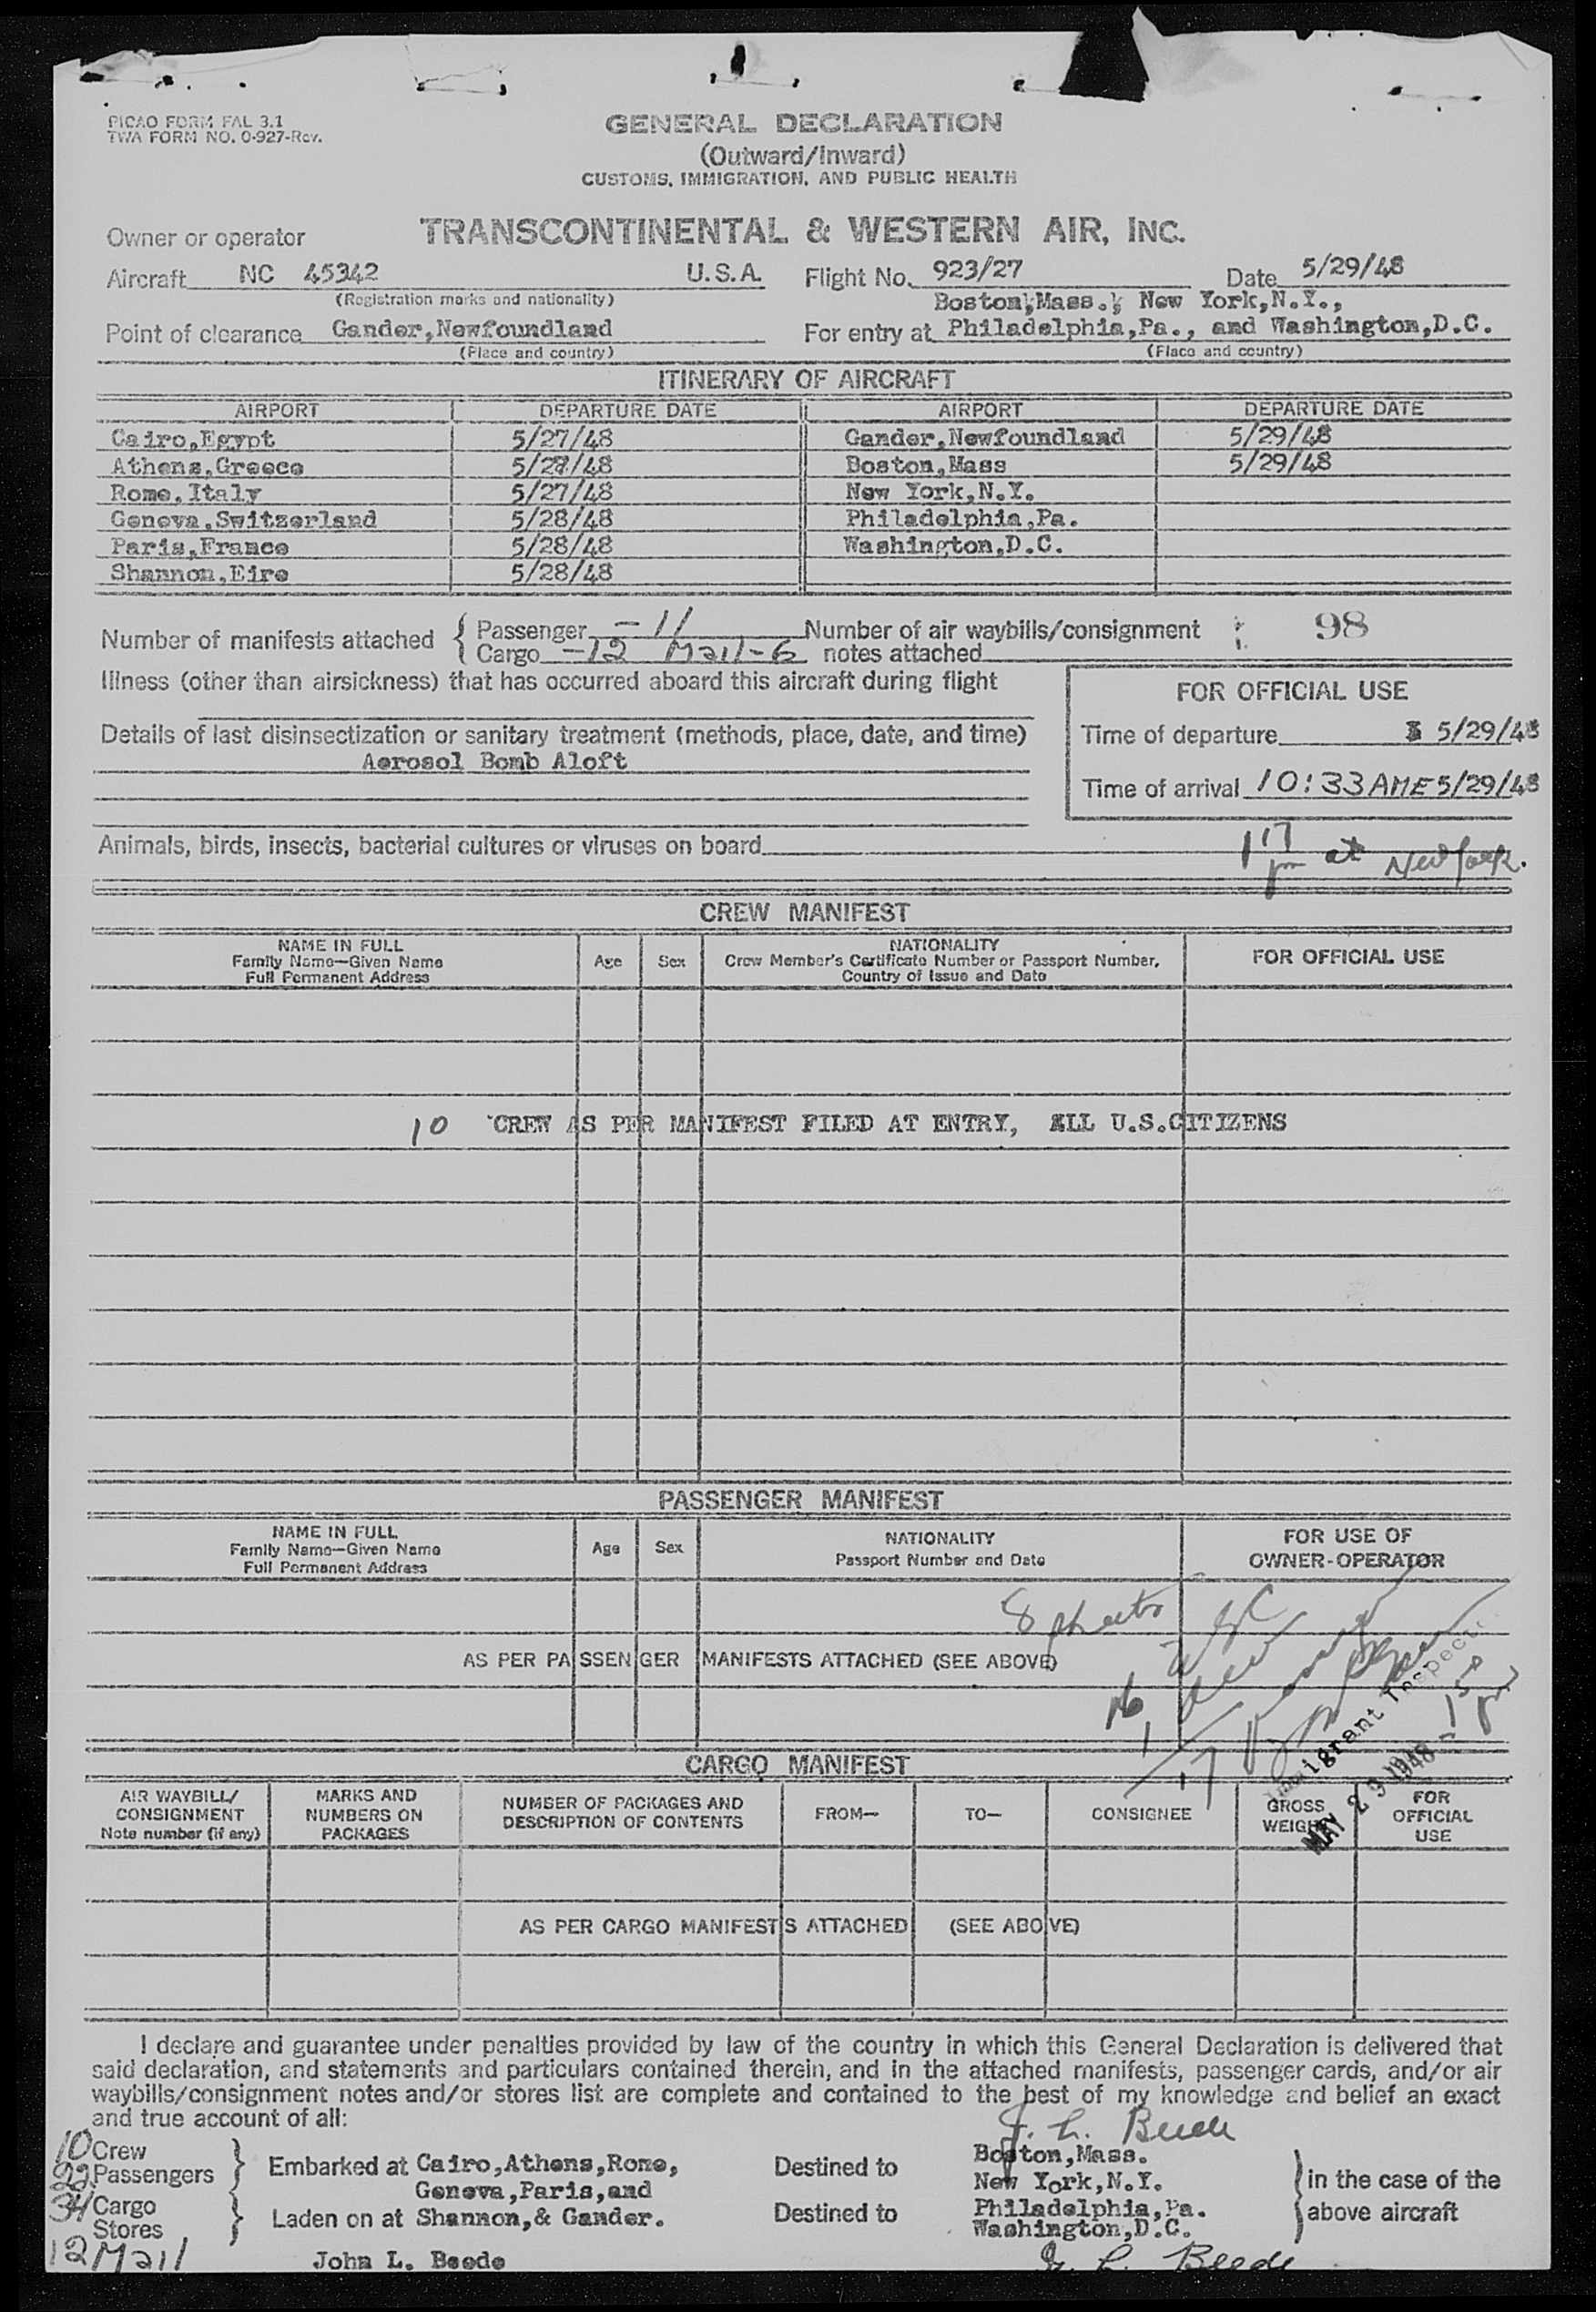 PICAO FORM FAL 3.1
TWA FORM NO. 0-927-Rev.
GENERAL DECLARATION
(Outward/Inward)
CUSTOMS, IMMIGRATION, AND PUBLIC HEALTH
Owner or operator TRANSCONTINENTAL & WESTERN AIR, INC.
Aircraft NC 45342 U.S.A. Flight No. 923/27 Date 5/29/48
(Registration marks and nationality)
Boston,Mass., New York,N.Y.,
Point of clearance Gander,Newfoundland For entry at Philadelphia,Pa., and Washington,D.C.
(Place and country) (Place and country)
ITINERARY OF AIRCRAFT
AIRPORT DEPARTURE DATE AIRPORT DEPARTURE DATE
Cairo,Egypt 5/27/48 Gander,Newfoundland 5/29/48
Athens,Greece 5/27/48 Boston,Mass 5/29/48
Rome,Italy 5/27/48 New York,N.Y.
Geneva,Switzerland 5/28/48 Philadelphia,Pa.
Paris,France 5/28/48 Washington,D.C.
Shannon,Eire 5/28/48
Number of manifests attached { Passenger - 11 Number of air waybills/consignment 98
Cargo -12 Mail-6 notes attached
Illness (other than airsickness) that has occurred aboard this aircraft during flight
FOR OFFICIAL USE
Details of last disinsectization or sanitary treatment (methods, place, date, and time)
Time of departure 5/29/48
Aerosol Bomb Aloft
Time of arrival 10:33AME 5/29/48
Animals, birds, insects, bacterial cultures or viruses on board
1 17 pm at New York.
CREW MANIFEST
NAME IN FULL
Family Name—Given Name
Full Permanent Address
Age Sex
NATIONALITY
Crew Member's Certificate Number or Passport Number,
Country of Issue and Date
FOR OFFICIAL USE
10 CREW AS PER MANIFEST FILED AT ENTRY, ALL U.S.CITIZENS
PASSENGER MANIFEST
NAME IN FULL
Family Name—Given Name
Full Permanent Address
Age Sex
NATIONALITY
Passport Number and Date
FOR USE OF
OWNER-OPERATOR
8 sheets
AS PER PASSENGER MANIFESTS ATTACHED (SEE ABOVE)
16
1
17
Immigrant Inspector
MAY 29 1948
CARGO MANIFEST
AIR WAYBILL/
CONSIGNMENT
Note number (if any)
MARKS AND
NUMBERS ON
PACKAGES
NUMBER OF PACKAGES AND
DESCRIPTION OF CONTENTS
FROM— TO— CONSIGNEE
GROSS
WEIGHT
FOR
OFFICIAL
USE
AS PER CARGO MANIFESTS ATTACHED (SEE ABOVE)
I declare and guarantee under penalties provided by law of the country in which this General Declaration is delivered that
said declaration, and statements and particulars contained therein, and in the attached manifests, passenger cards, and/or air
waybills/consignment notes and/or stores list are complete and contained to the best of my knowledge and belief an exact
and true account of all:
J. L. Beede
10 Crew
Passengers
34 Cargo
Stores
12 Mail
Embarked at Cairo,Athens,Rome,
Geneva,Paris,and
Laden on at Shannon,& Gander.
Destined to
Destined to
Boston,Mass.
New York,N.Y.
Philadelphia,Pa.
Washington,D.C.
in the case of the
above aircraft
John L. Beede
J. L. Beede